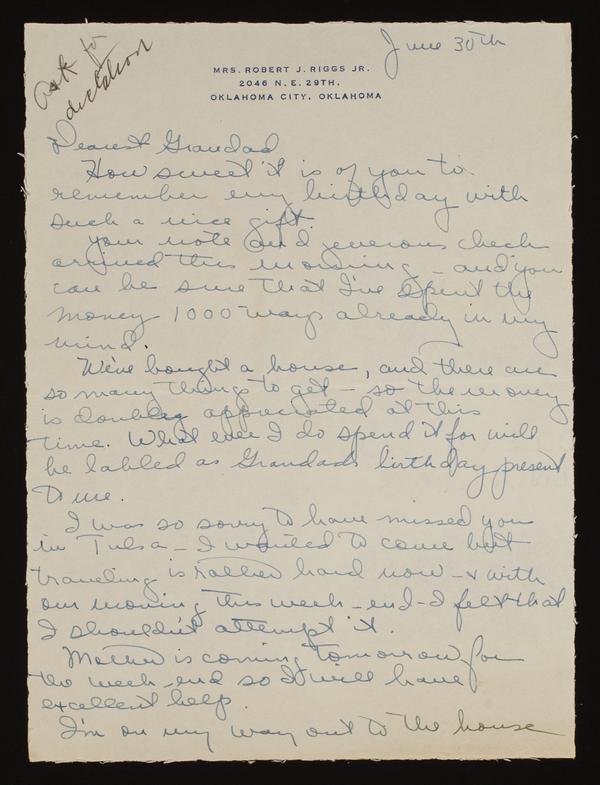 June 30th
Ask to
dictation
MRS. ROBERT J. RIGGS JR.
2046 N. E. 29TH.
OKLAHOMA CITY, OKLAHOMA
Dearest Grandad
How sweet it is of you to
remember my birthday with
such a nice gift.
Your note and generous check
arrived this morning - and you
can be sure that I've spent the
money 1000 ways already in my
mind.
We've bought a house, and there are
so many things to get - so the money
is doubley appreciated at this
time. What ever I do spend it for will
be labled as Grandads birthday present
to me.
I was so sorry to have missed you
in Tulsa - I wanted to come but
traveling is rather hard now - & with
our moving this week-end - I felt that
I shouldn't attempt it.
Mother is coming tomorrow for
the week-end so I will have
excellent help.
I'm on my way out to the house